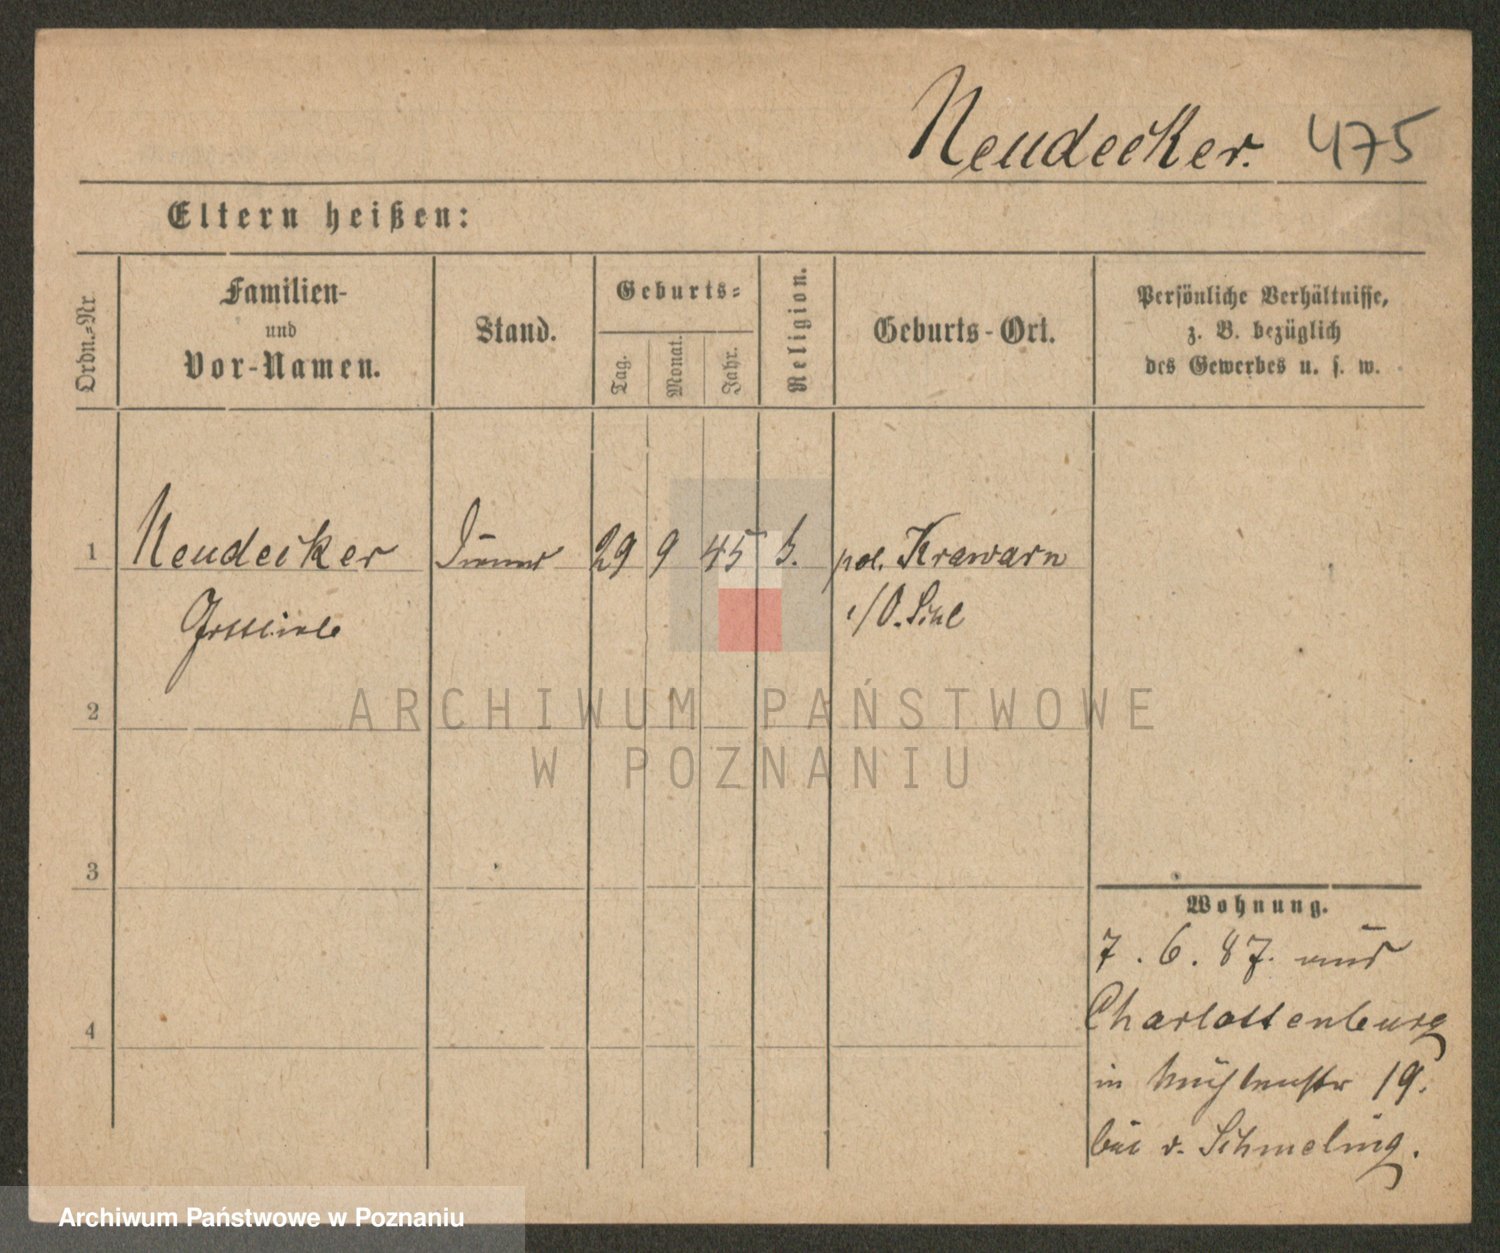 Neudecker. 475
Eltern heißen:
Ordn.=Nr.
Familien-
und
Vor-Namen.
Stand.
Geburts=
Tag.
Monat.
Jahr.
Religion.
Geburts-Ort.
Persönliche Verhältnisse,
z. B. bezüglich
des Gewerbes u. s. w.
1 Neudecker 29 9 45 pol. Krawarn
2
3
4
Wohnung.
7. 6. 87.
Charlottenburg
in Mühlenstr 19.
bei v. Schmeling.
ARCHIWUM PAŃSTWOWE
W POZNANIU
Archiwum Państwowe w Poznaniu